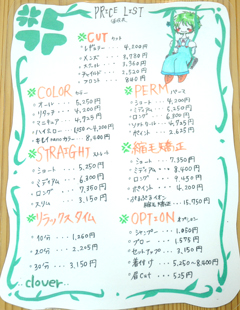 PRICE LIST
CUT カット
レギュラー ・・・ 4,200円
メンズ ・・・ 3,780円
スクール ・・・ 3,360円
チャイルド ・・・ 2,520円
フロント ・・・ 840円
COLOR カラー
オール ・・・ 5,250円
リタッチ ・・・ 4,200円
マニキュア ・・・ 4,725円
ハイミロー
4,200円
PERM パーマ
ショート ・・・ 4,200円
ミディアム ・・・ 5,250円
ロング ・・・ 6,300円
ポイント ・・・ 2,625円
STRAIGHT ストレート
ショート ・・・ 5,250円
ミディアム ・・・ 6,300円
ロング ・・・ 7,350円
メリム ・・・ 3,150円
縮毛矯正
ショート ・・・ 7,350円
ミディアム ・・・ 8,400円
ロング ・・・ 9,450円
ポイント ・・・ 4,200円
縮毛矯正 ・・・ 15,750円
リラックスタイム
10分 ・・・ 1,260円
20分 ・・・ 2,205円
30分 ・・・ 3,150円
OPTION オプション
シャンプー ・・・ 1,050円
ブロー ・・・ 1,575円
セットアップ ・・・ 3,150円
着付け ・・・ 5,250~8,400円
眉Cut ・・・ 525円
...clover...